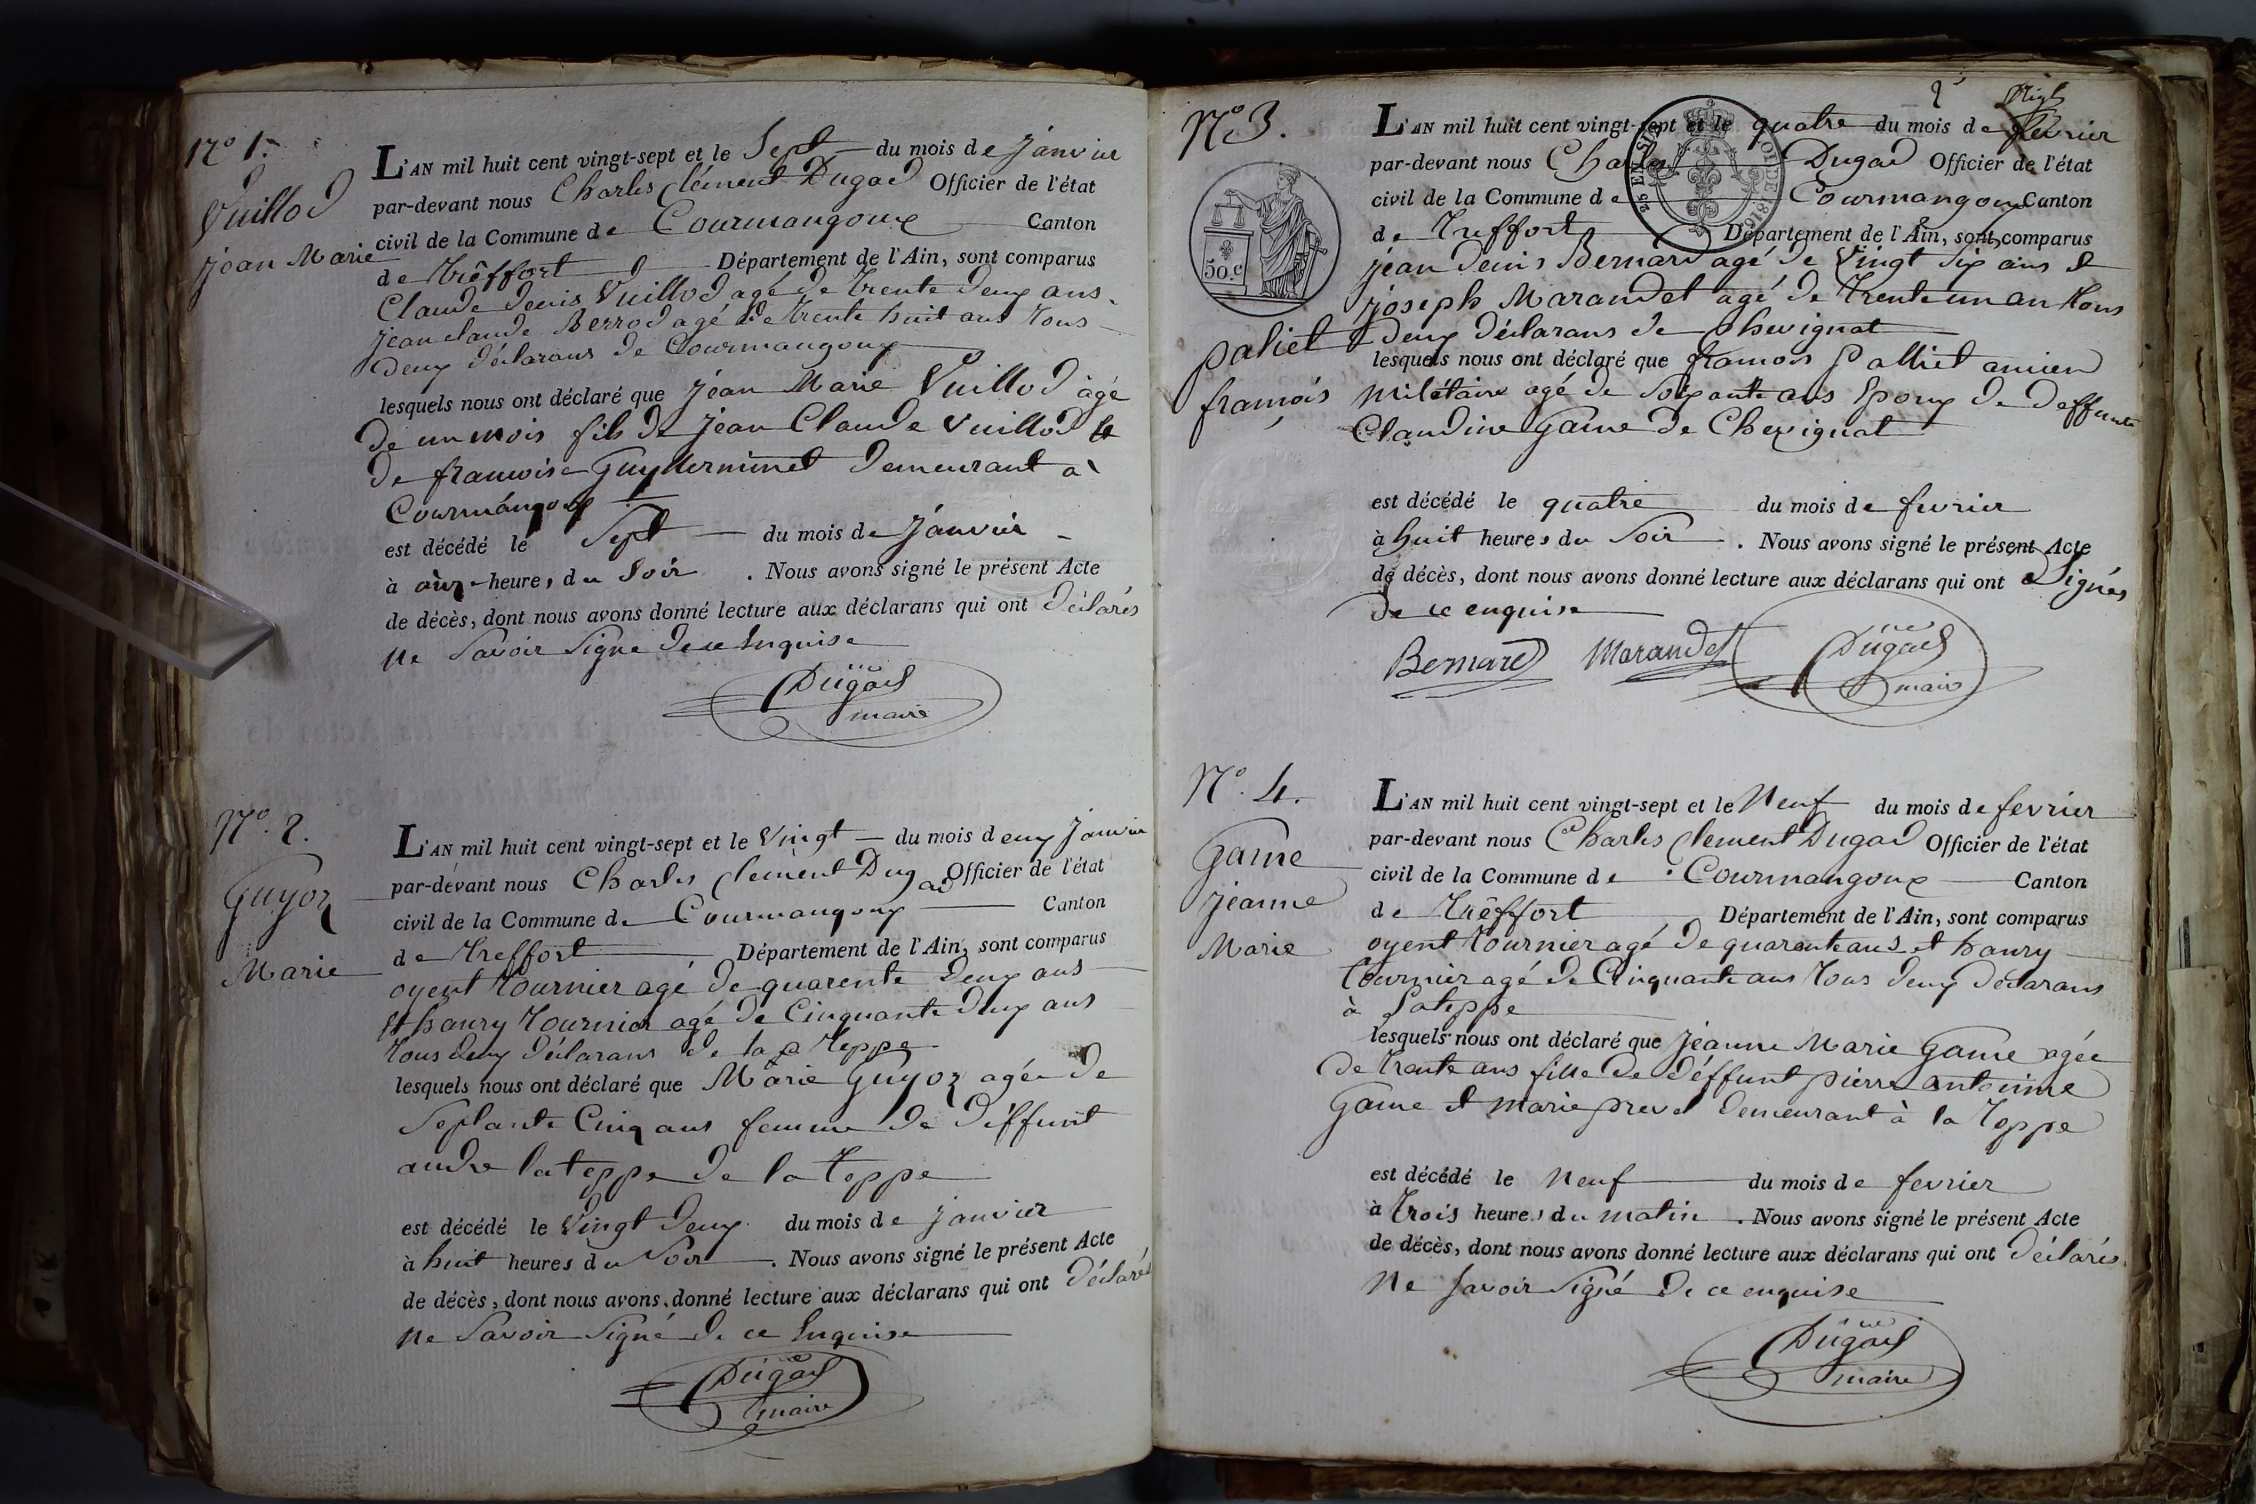 N.o 1.
Vuillod
jean Marie
L'AN mil huit cent vingt-sept et le Sept du mois de janvier
par-devant nous Charles Clément Dugad Officier de l'état
civil de la Commune de Courmangoux Canton
de Trêffort Département de l'Ain, sont comparus
Claude denis Vuillod agé de trente deux ans
jean claude Berrod agé de trente huit ans tous
deux déclarans de Courmangoux
lesquels nous ont déclaré que jean Marie Vuillod agé
de un mois fils de jean Claude Vuillod et
de francoise demeurant à
Courmangoux
est décédé le Sept du mois de janvier
à onze heures du Soir. Nous avons signé le présent Acte
de décès, dont nous avons donné lecture aux déclarans qui ont déclarés
Ne Savoir Signé de ce Enquise
Dugad
maire
N.o 2.
Guyoz
Marie
L'AN mil huit cent vingt-sept et le Vingt du mois deux janvier
par-devant nous Charles Clement Dugad Officier de l'état
civil de la Commune de Courmangoux Canton
de Treffort Département de l'Ain, sont comparus
oyent tournier agé de quarente deux ans
Et haury tournier agé de Cinquante deux ans
tous deux déclarans de la teppe
lesquels nous ont déclaré que Marie Guyoz agée de
Septante Cinq ans femme de déffunt
andre lateppe de la teppe
est décédé le Vingt deux du mois de janvier
à huit heures du Soir. Nous avons signé le présent Acte
de décès, dont nous avons donné lecture aux déclarans qui ont déclarés
Ne Savoir Signé de ce Enquise
Dugad
maire
2
N.o 3.
50.c
paliet
framois
L'AN mil huit cent vingt-sept et le quatre du mois de février
par-devant nous Charles Dugad Officier de l'état
civil de la Commune de Courmangoux Canton
de Treffort Département de l'Ain, sont comparus
jean denis Bernard agé de Vingt Six ans et
joseph Marandet agé de trente un an tous
deux déclarans de Chevignat
lesquels nous ont déclaré que framois Palliet amien
Milétaire agé de Soixante ans Epoux de deffunte
Claudine Game de Chevignat
est décédé le quatre du mois de fevrier
à huit heures du Soir. Nous avons signé le présent Acte
de décès, dont nous avons donné lecture aux déclarans qui ont Signés
de ce enquise
Bernard Marandet Dugad
maire
N.o 4.
Game
jeanne
Marie
L'AN mil huit cent vingt-sept et le Neuf du mois de fevrier
par-devant nous Charles Clement Dugad Officier de l'état
civil de la Commune de Courmangoux Canton
de Trêffort Département de l'Ain, sont comparus
oyent tournier agé de quarante ans et haury
tournier agé de Cinquante ans tous deux déclarans
à Lateppe
lesquels nous ont déclaré que jeanne Marie Game agée
de trente ans fille de déffunt pierre antoinne
Game et marie prevel demeurant à la teppe
est décédé le Neuf du mois de fevrier
à trois heures du matin. Nous avons signé le présent Acte
de décès, dont nous avons donné lecture aux déclarans qui ont déclarés
Ne Savoir Signé de ce enquise
Dugad
maire